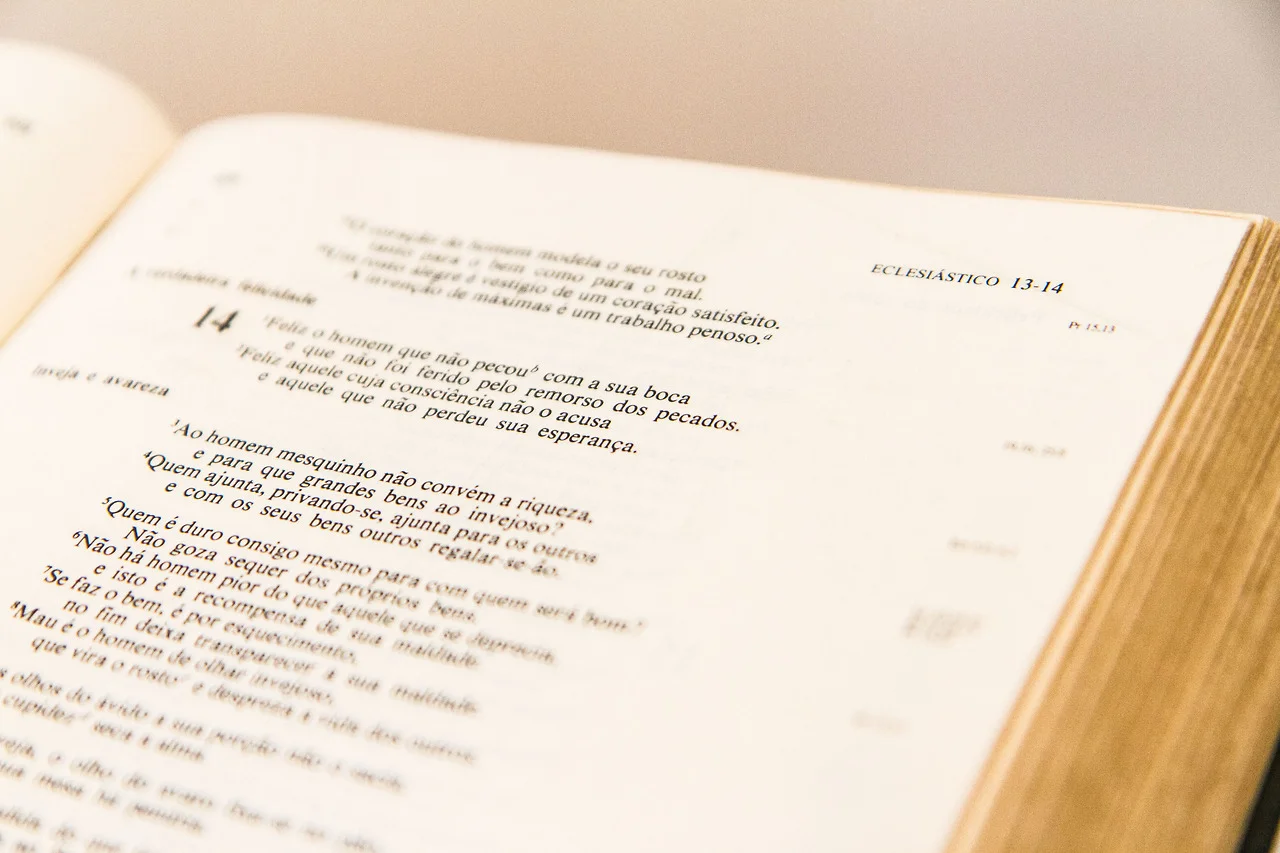 ECLESIÁSTICO 13-14
O coração do homem modela o seu rosto
tanto para o bem como para o mal.
Um rosto alegre é vestígio de um coração satisfeito.
A invenção de máximas é um trabalho penoso.ᵃ
Pr 15,13
A verdadeira felicidade
14 ¹Feliz o homem que não pecouᵇ com a sua boca
e que não foi ferido pelo remorso dos pecados.
²Feliz aquele cuja consciência não o acusa
e aquele que não perdeu sua esperança.
Inveja e avareza
³Ao homem mesquinho não convém a riqueza,
e para que grandes bens ao invejoso?
⁴Quem ajunta, privando-se, ajunta para os outros
e com os seus bens outros regalar-se-ão.
⁵Quem é duro consigo mesmo para com quem será bom?
Não goza sequer dos próprios bens.
⁶Não há homem pior do que aquele que se deprecia,
e isto é a recompensa de sua maldade.
⁷Se faz o bem, é por esquecimento,
no fim deixa transparecer a sua maldade.
⁸Mau é o homem de olhar invejoso,
que vira o rosto e despreza a vida dos outros.
olhos do ávido a sua porção não
cupidez seca a alma.
o olho do
mesa